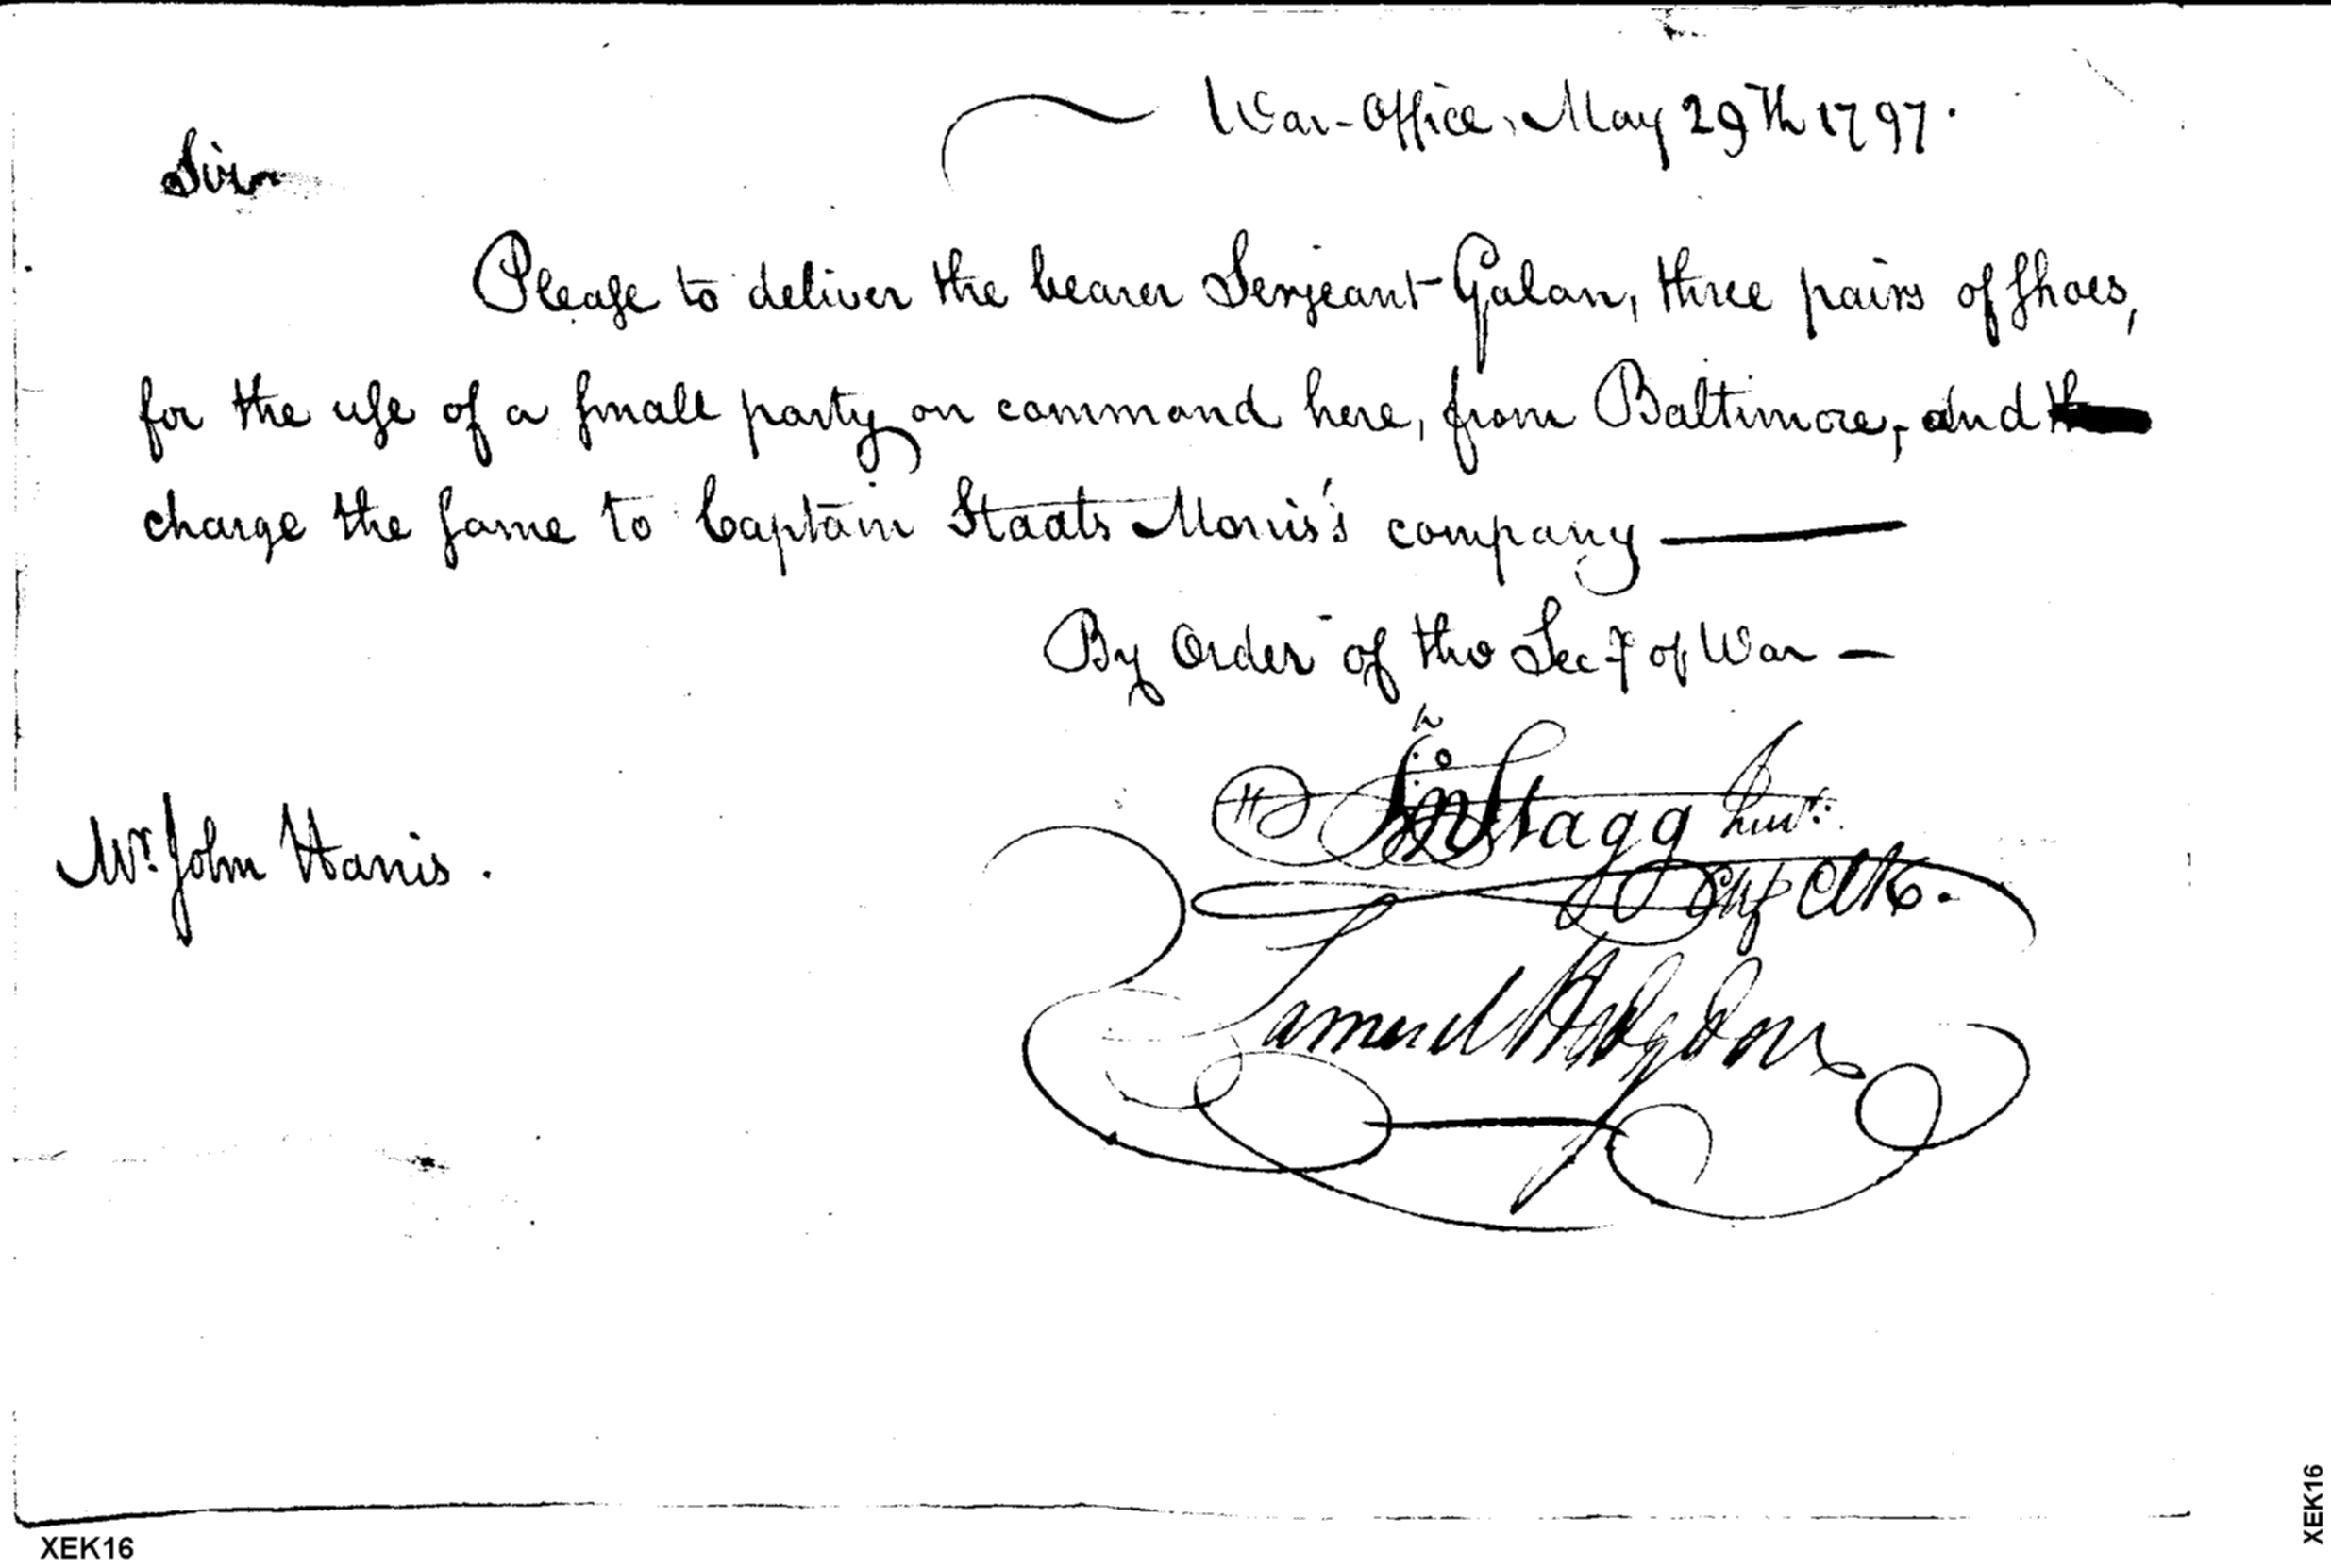 War-Office, May 29th 1797.
Sir
Please to deliver the bearer Serjeant Galan, three pairs of shoes,
for the use of a small party on command here, from Baltimore, and
charge the same to Captain Staats Morris's company
By Order of the Secy of War
Jno Stagg Junr.
Mr. John Harris.
Chf Clk.
Samuel Hodgdon
XEK16
XEK16